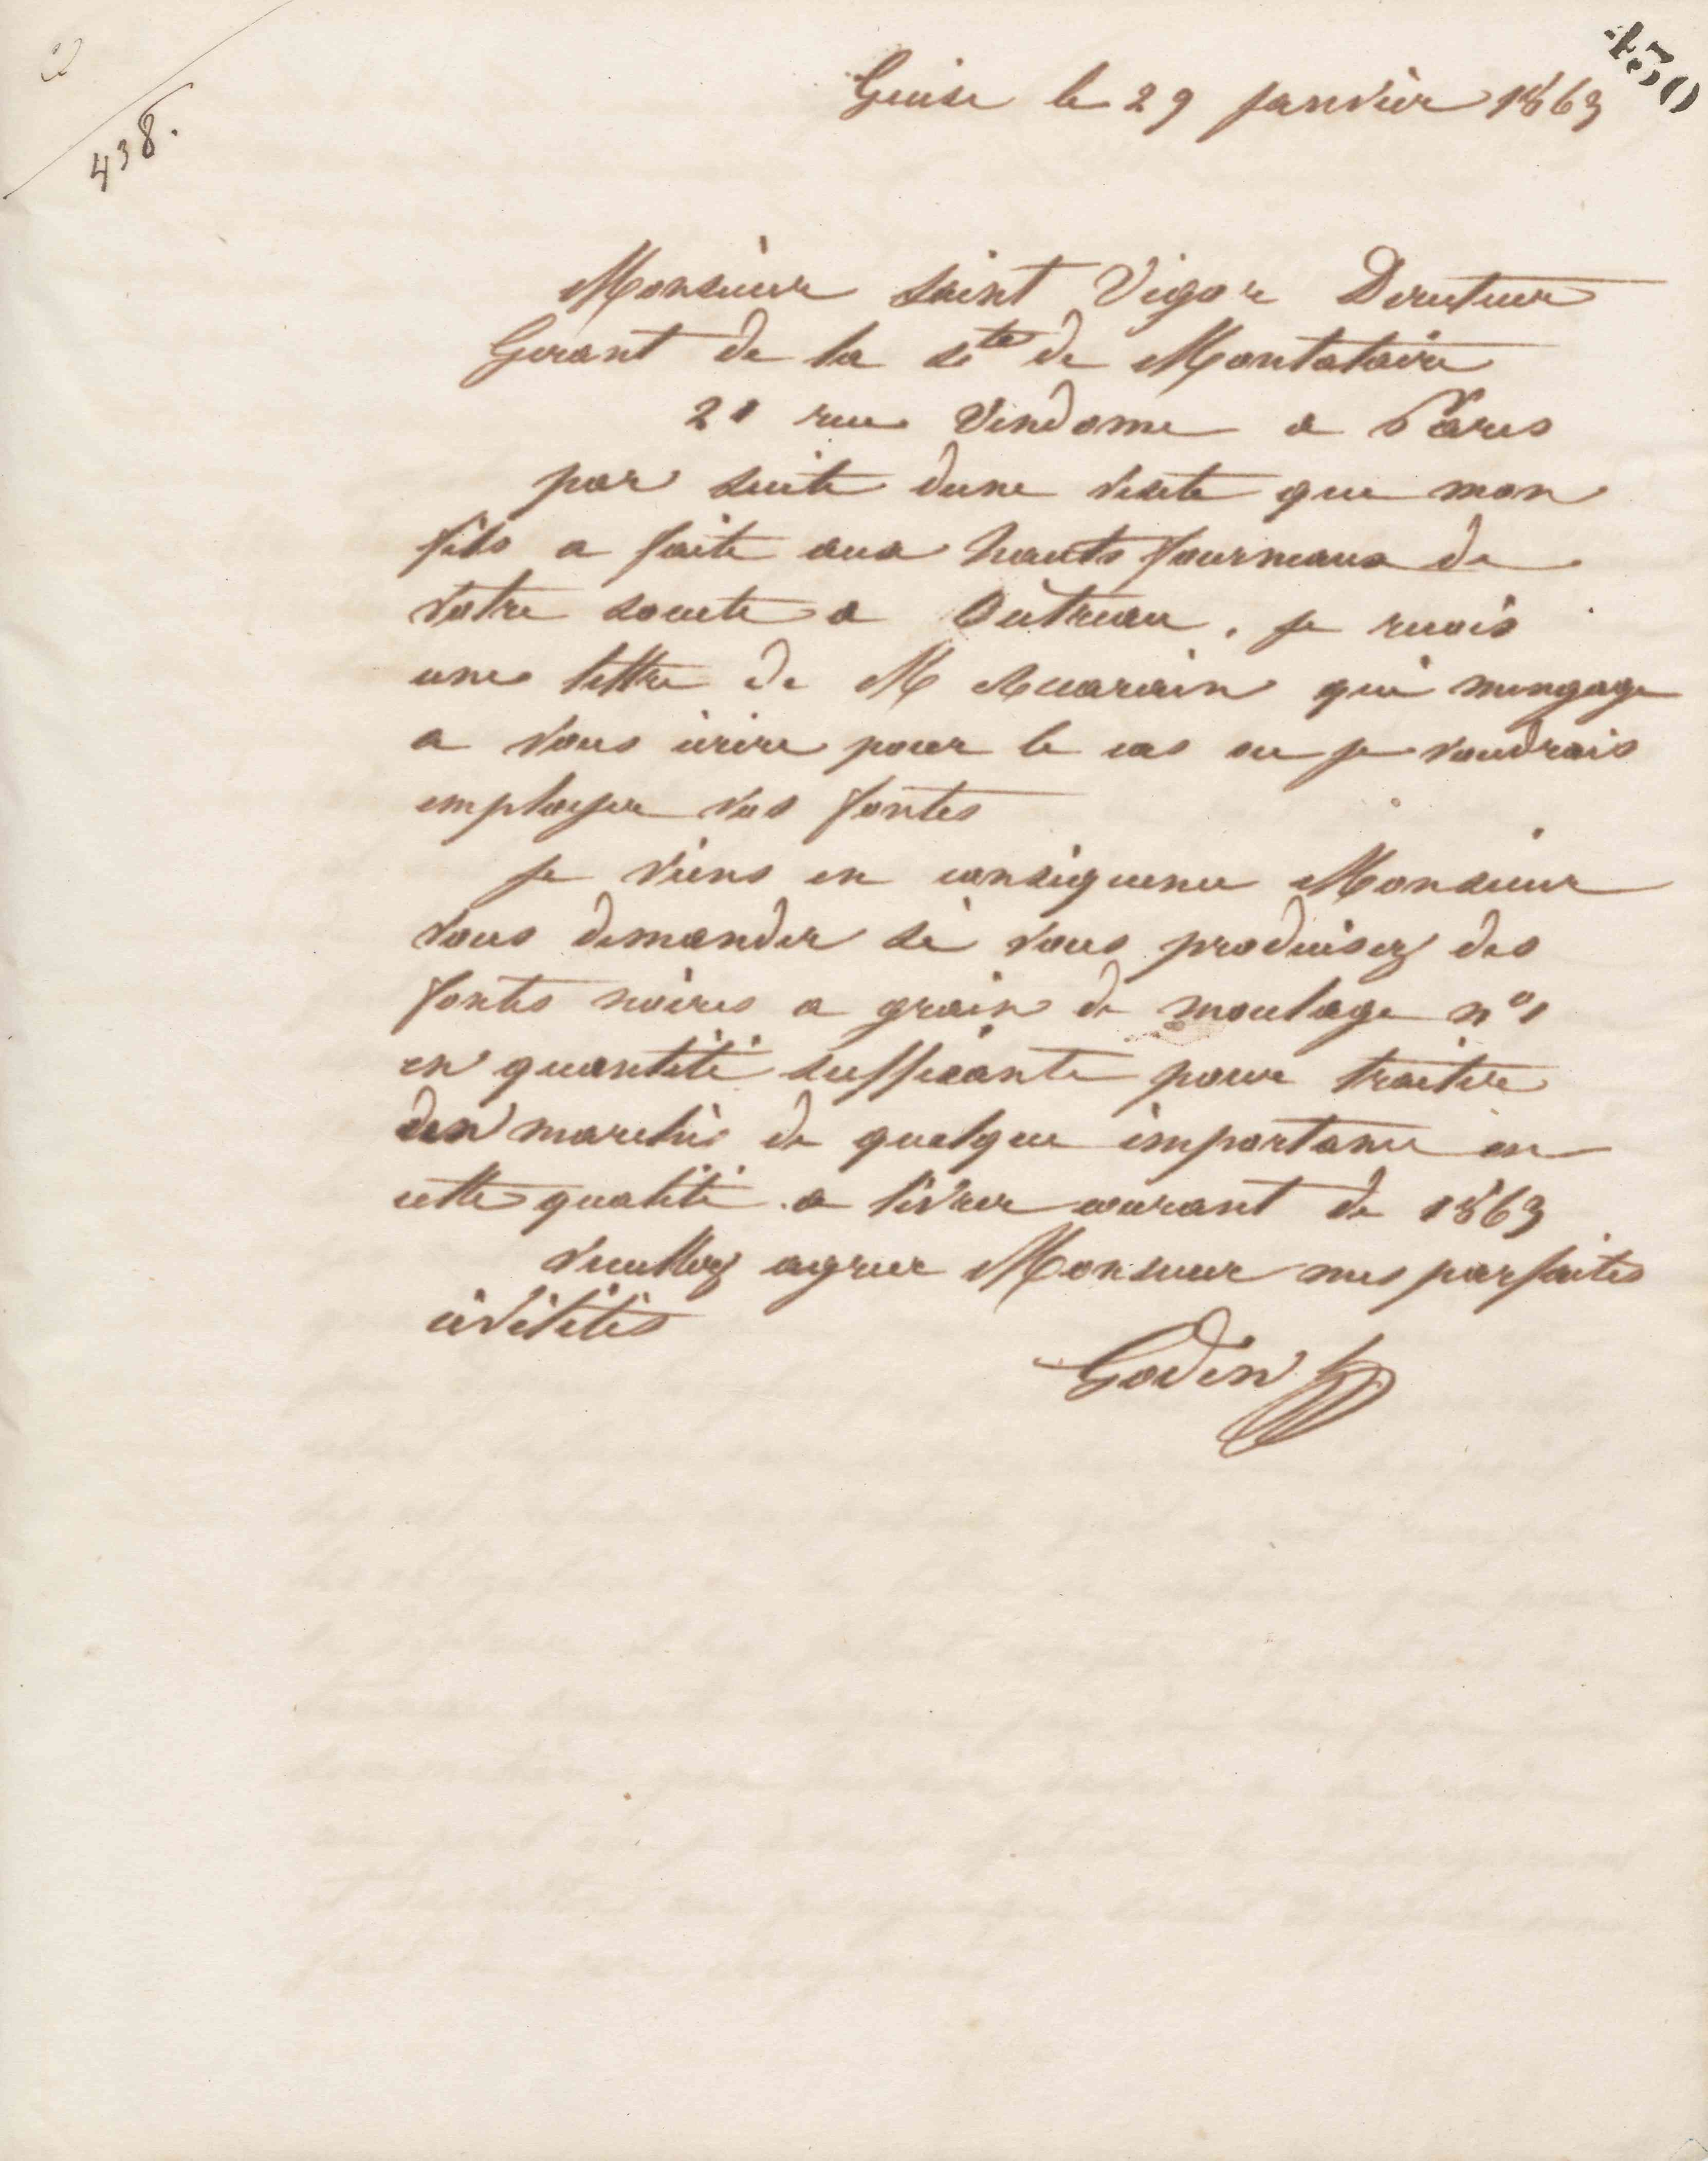 450
438.
Guise le 29 janvier 1863
Monsieur Saint Vigor Directeur
Gerant de la Sté de Montataire
21 rue Vendome a Paris
par suite dune visite que mon
fils a faite aux hauts fourneaux de
votre societe a Outreau, je recois
une lettre de M qui mengage
a vous écrire pour le cas ou je voudrais
employer vos fontes
je viens en conséquence Monsieur
vous demander si vous produisez des
fontes noires a grain de moulage n° 1
en quantité suffisante pour traiter
marchés de quelque importance en
cette qualité a livrer courant de 1863
veuillez agreer Monsieur mes parfaites
civilités
Godin